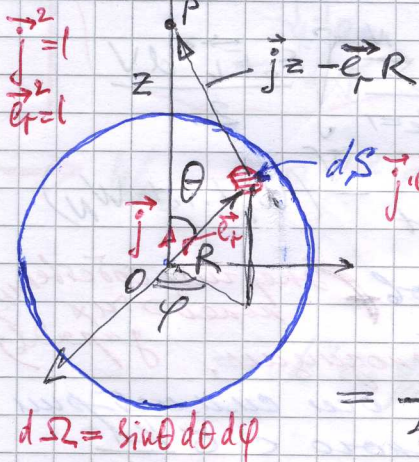 P
\vec{j}^2=1
\vec{e_r}^2=1
z
\vec{j}z-\vec{e_r}R
θ
dS
\vec{j}
\vec{j}
\vec{e_r}
R
O
φ
=
dΩ = sinθ dθ dφ